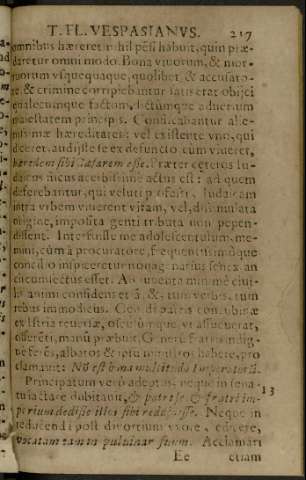 T. FL. VESPASIANVS. 217
omnibus hæreret nihil pēsi habuit, quin præ-
daretur omni modo. Bona vivorum, & mor-
tuorum vsquequaque, quolibet & accusato-
re & crimine corripiebantur satis erat obijci
qualecumque factum, dictumque aduersum
maiestatem principis. Confiscabantur alie-
nissimæ hæreditates: vel existente vno, qui
diceret, audisse se ex defuncto cùm viueret,
heredem sibi Cæsarem esse. Præter ceteros Iu-
daicus fiscus acerbissimè actus est: ad quem
deferebantur, qui veluti professi Iudaicam
intra vrbem viuerent vitam, vel, dissimulata
origine, imposita genti tributa non pepen-
dissent. Interfuisse me adolescentulum, me-
mini, cùm à procuratore, frequentissimóque
concilio inspiceretur nonagenarius senex, an
circumsectus esset. Ab iuuenta minimè ciui-
lis animi confidens etiā, & tum verbis, tum
rebus immodicus. Cænidi patris concubinæ
ex Istria reuersæ, osculumque, vt assuerat,
offerenti, manū præbuit. Generū fratris indig-
nè ferēs, albatos & ipsū ministros habere, pro
clamauit:
Principatum verò adeptus, neque in sena- 13
tu iactare dubitauit, & patri se, & fratri im-
perium dedisse illos sibi reddidisse. Neque in
reducenda post diuortium vxore, edicere,
vocatam eam in puluinar suum. Acclamari
Ee etiam